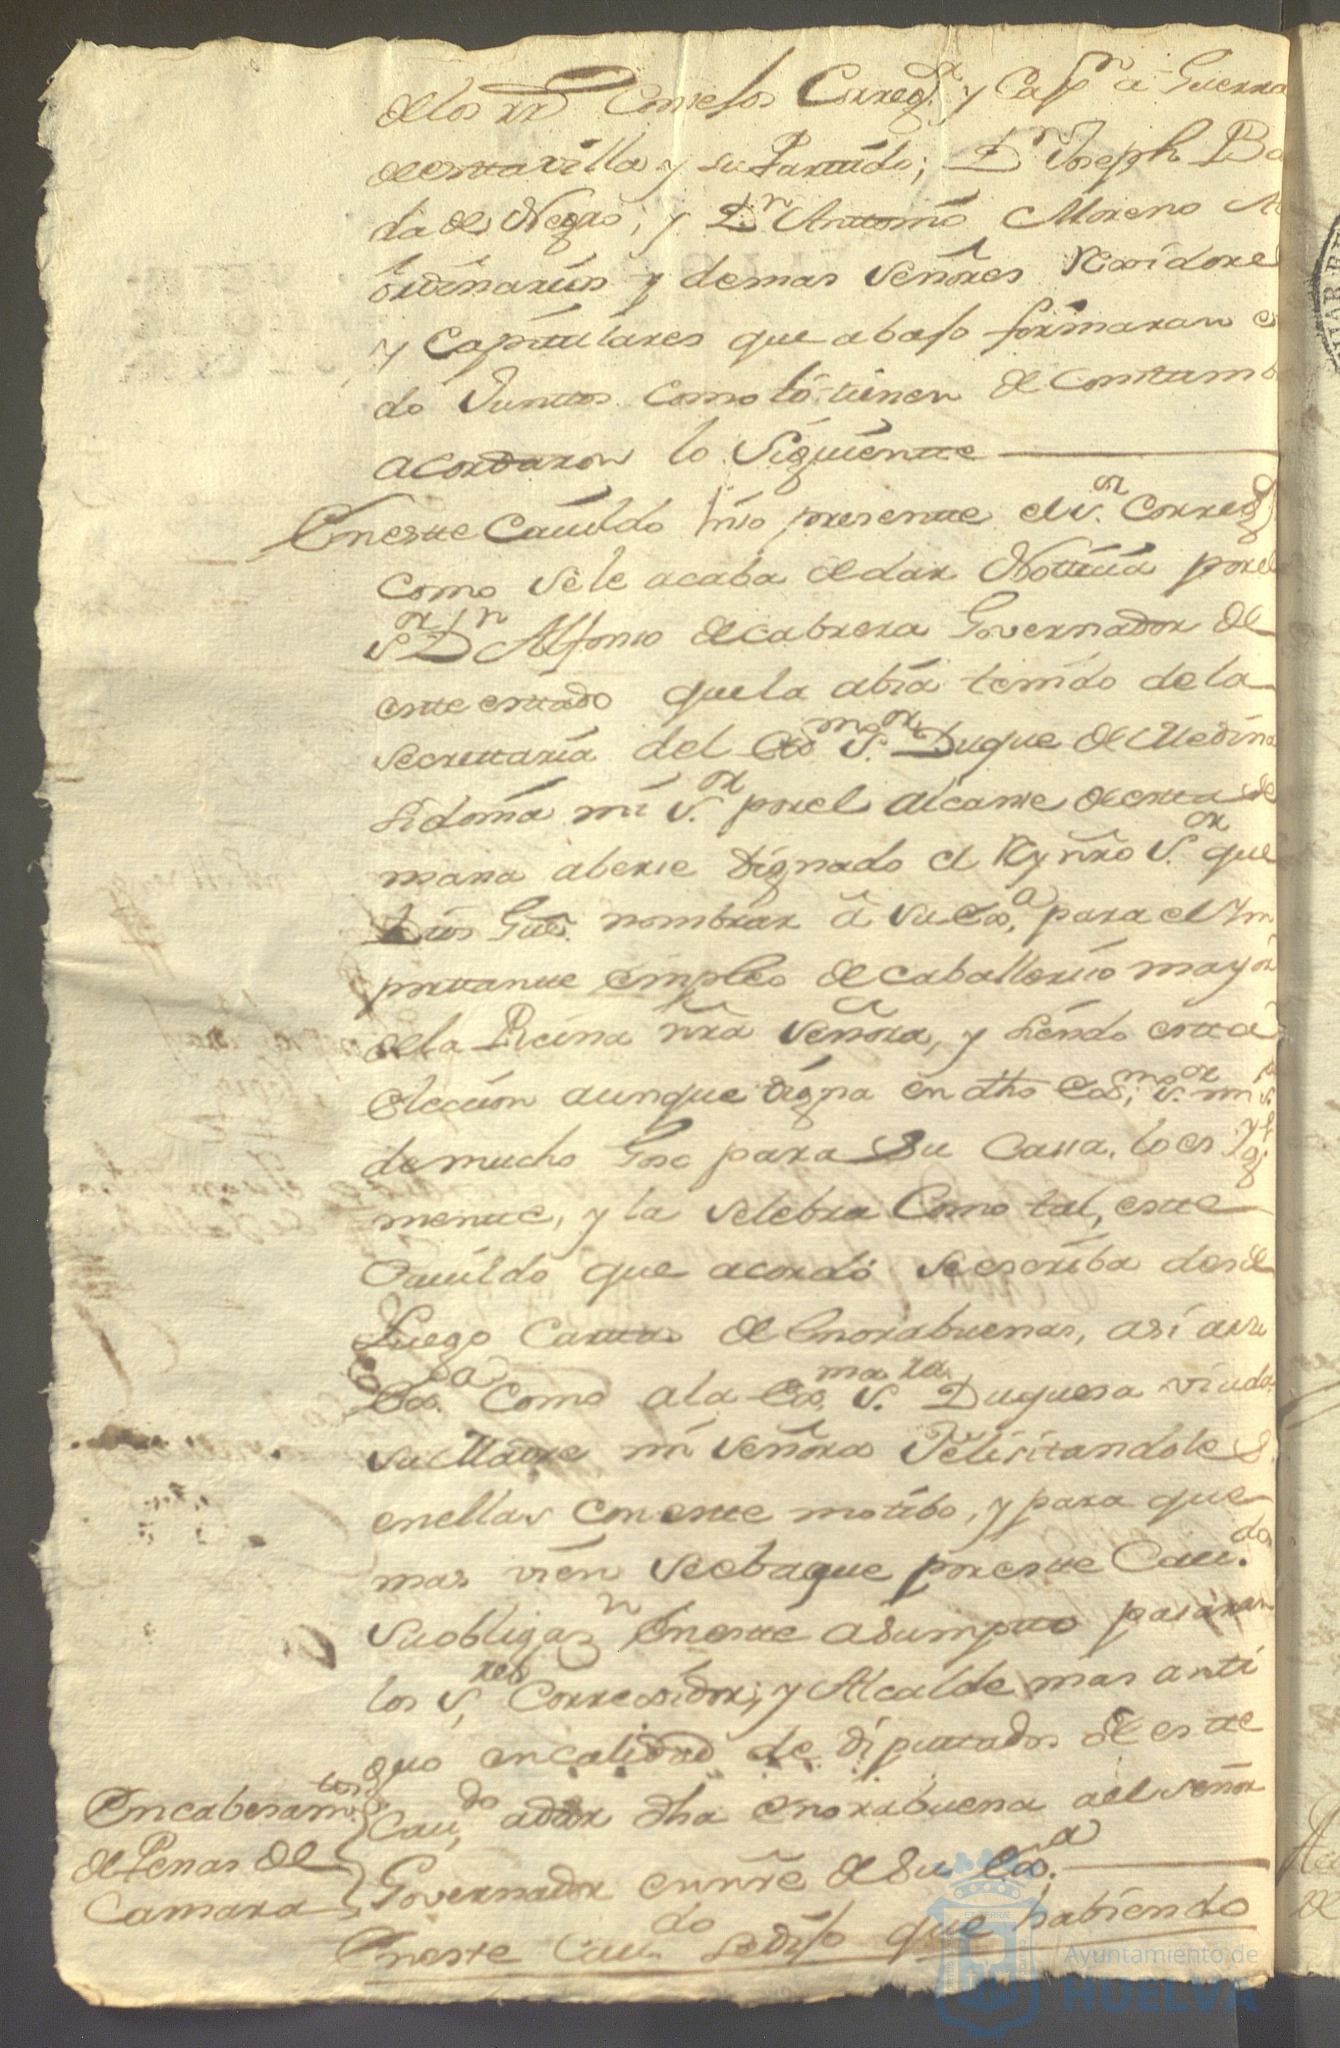 delos RR.s Consejos Correg.r y Cap.n a Guerra
de esta villa y su Partido; D.n Joseph Ba
da de Negro; y D.n Antonio Moreno Al
ordinarios y demas Señores Rexidores
y Capitulares que abajo firmaran es
do Juntos como lo tienen de Costumb
acordaron lo Siguiente
En este Cauildo hizo presente el S.or Correg.r
como se le acaba de dar Noticia por el
S.or D.n Alfonso de Cabrera Governador de
este estado que la abia tenido de la
secretaria del Ex.mo S.or Duque de Medina
Sidonia mi S.or por el alcanse de esta se
mana aberse dignado el Rey ñro S.or que
Dios Gue. nombrar â su Ex.a para el Ym
portante empleo de caballeriso mayor
de la Reina ñra Señora, y siendo esta
eleccion aunque digna en dho Ex.mo S.or mi S.r
de mucho Goso para su Casa, lo es yg.l
mente, y la selebra Como tal, este
Cauildo que acordó se escriba desde
Luego Cartas de Enorabuenas, asi a su
Ex.a Como a la Ex.ma S.ra Duquesa viuda
su Madre mi señora Felisitandoles
en ellas con este motibo, y para que
mas vien se ebaque por este Cau.do
su obligaz.n En este asumpto pasaran
los S.res Corregidor, y Alcalde mas anti
guo en calidad de diputados de este
Cau.do a dar dha enorabuena a el señor
Governador en nre de su Ex.a
Encabesam.tos
de Penas de
Camara
En este Cau.do se dijo que habiendo
Ayuntamiento de
HUELVA